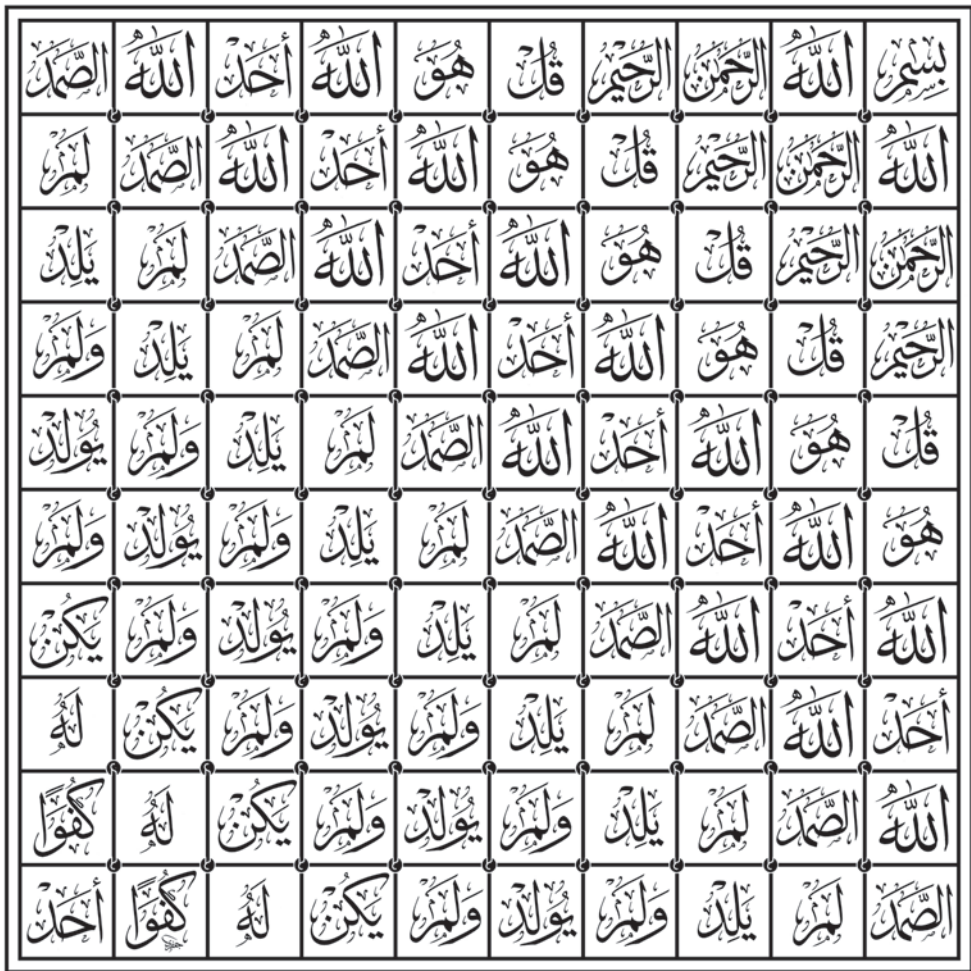 بِسْمِ اللَّهِ الرَّحْمَنِ الرَّحِيمِ قُلْ هُوَ اللَّهُ أَحَدٌ اللَّهُ الصَّمَدُ
اللَّهِ الرَّحْمَنِ الرَّحِيمِ قُلْ هُوَ اللَّهُ أَحَدٌ اللَّهُ الصَّمَدُ لَمْ
الرَّحْمَنِ الرَّحِيمِ قُلْ هُوَ اللَّهُ أَحَدٌ اللَّهُ الصَّمَدُ لَمْ يَلِدْ
الرَّحِيمِ قُلْ هُوَ اللَّهُ أَحَدٌ اللَّهُ الصَّمَدُ لَمْ يَلِدْ وَلَمْ
قُلْ هُوَ اللَّهُ أَحَدٌ اللَّهُ الصَّمَدُ لَمْ يَلِدْ وَلَمْ يُولَدْ
هُوَ اللَّهُ أَحَدٌ اللَّهُ الصَّمَدُ لَمْ يَلِدْ وَلَمْ يُولَدْ وَلَمْ
اللَّهُ أَحَدٌ اللَّهُ الصَّمَدُ لَمْ يَلِدْ وَلَمْ يُولَدْ وَلَمْ يَكُنْ
أَحَدٌ اللَّهُ الصَّمَدُ لَمْ يَلِدْ وَلَمْ يُولَدْ وَلَمْ يَكُنْ لَهُ
اللَّهُ الصَّمَدُ لَمْ يَلِدْ وَلَمْ يُولَدْ وَلَمْ يَكُنْ لَهُ كُفُوًا
الصَّمَدُ لَمْ يَلِدْ وَلَمْ يُولَدْ وَلَمْ يَكُنْ لَهُ كُفُوًا أَحَدٌ